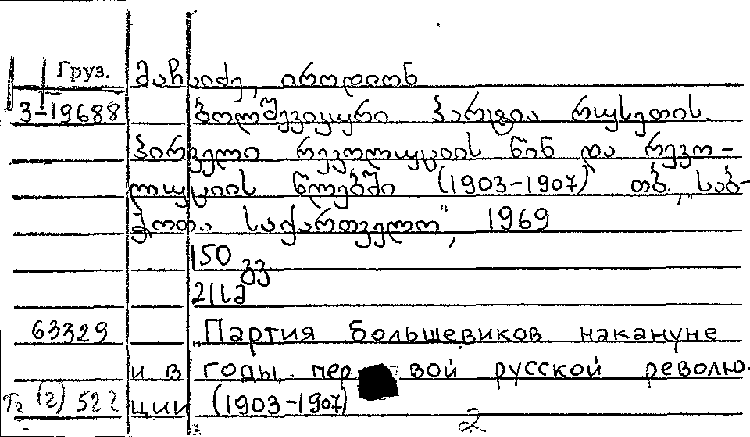 Груз. მაჩაიძე, იროდიონ
3-19688 ბოლშევიკური პარტია რუსეთის
პირველი რევოლუციის წინ და რევო-
ლუციის წლებში (1903-1907) თბ., „საბ-
ჭოთა საქართველო", 1969
150 გვ
63329 Партия большевиков накануне
и в годы пер вой русской револю-
ции (1903-1907)
2